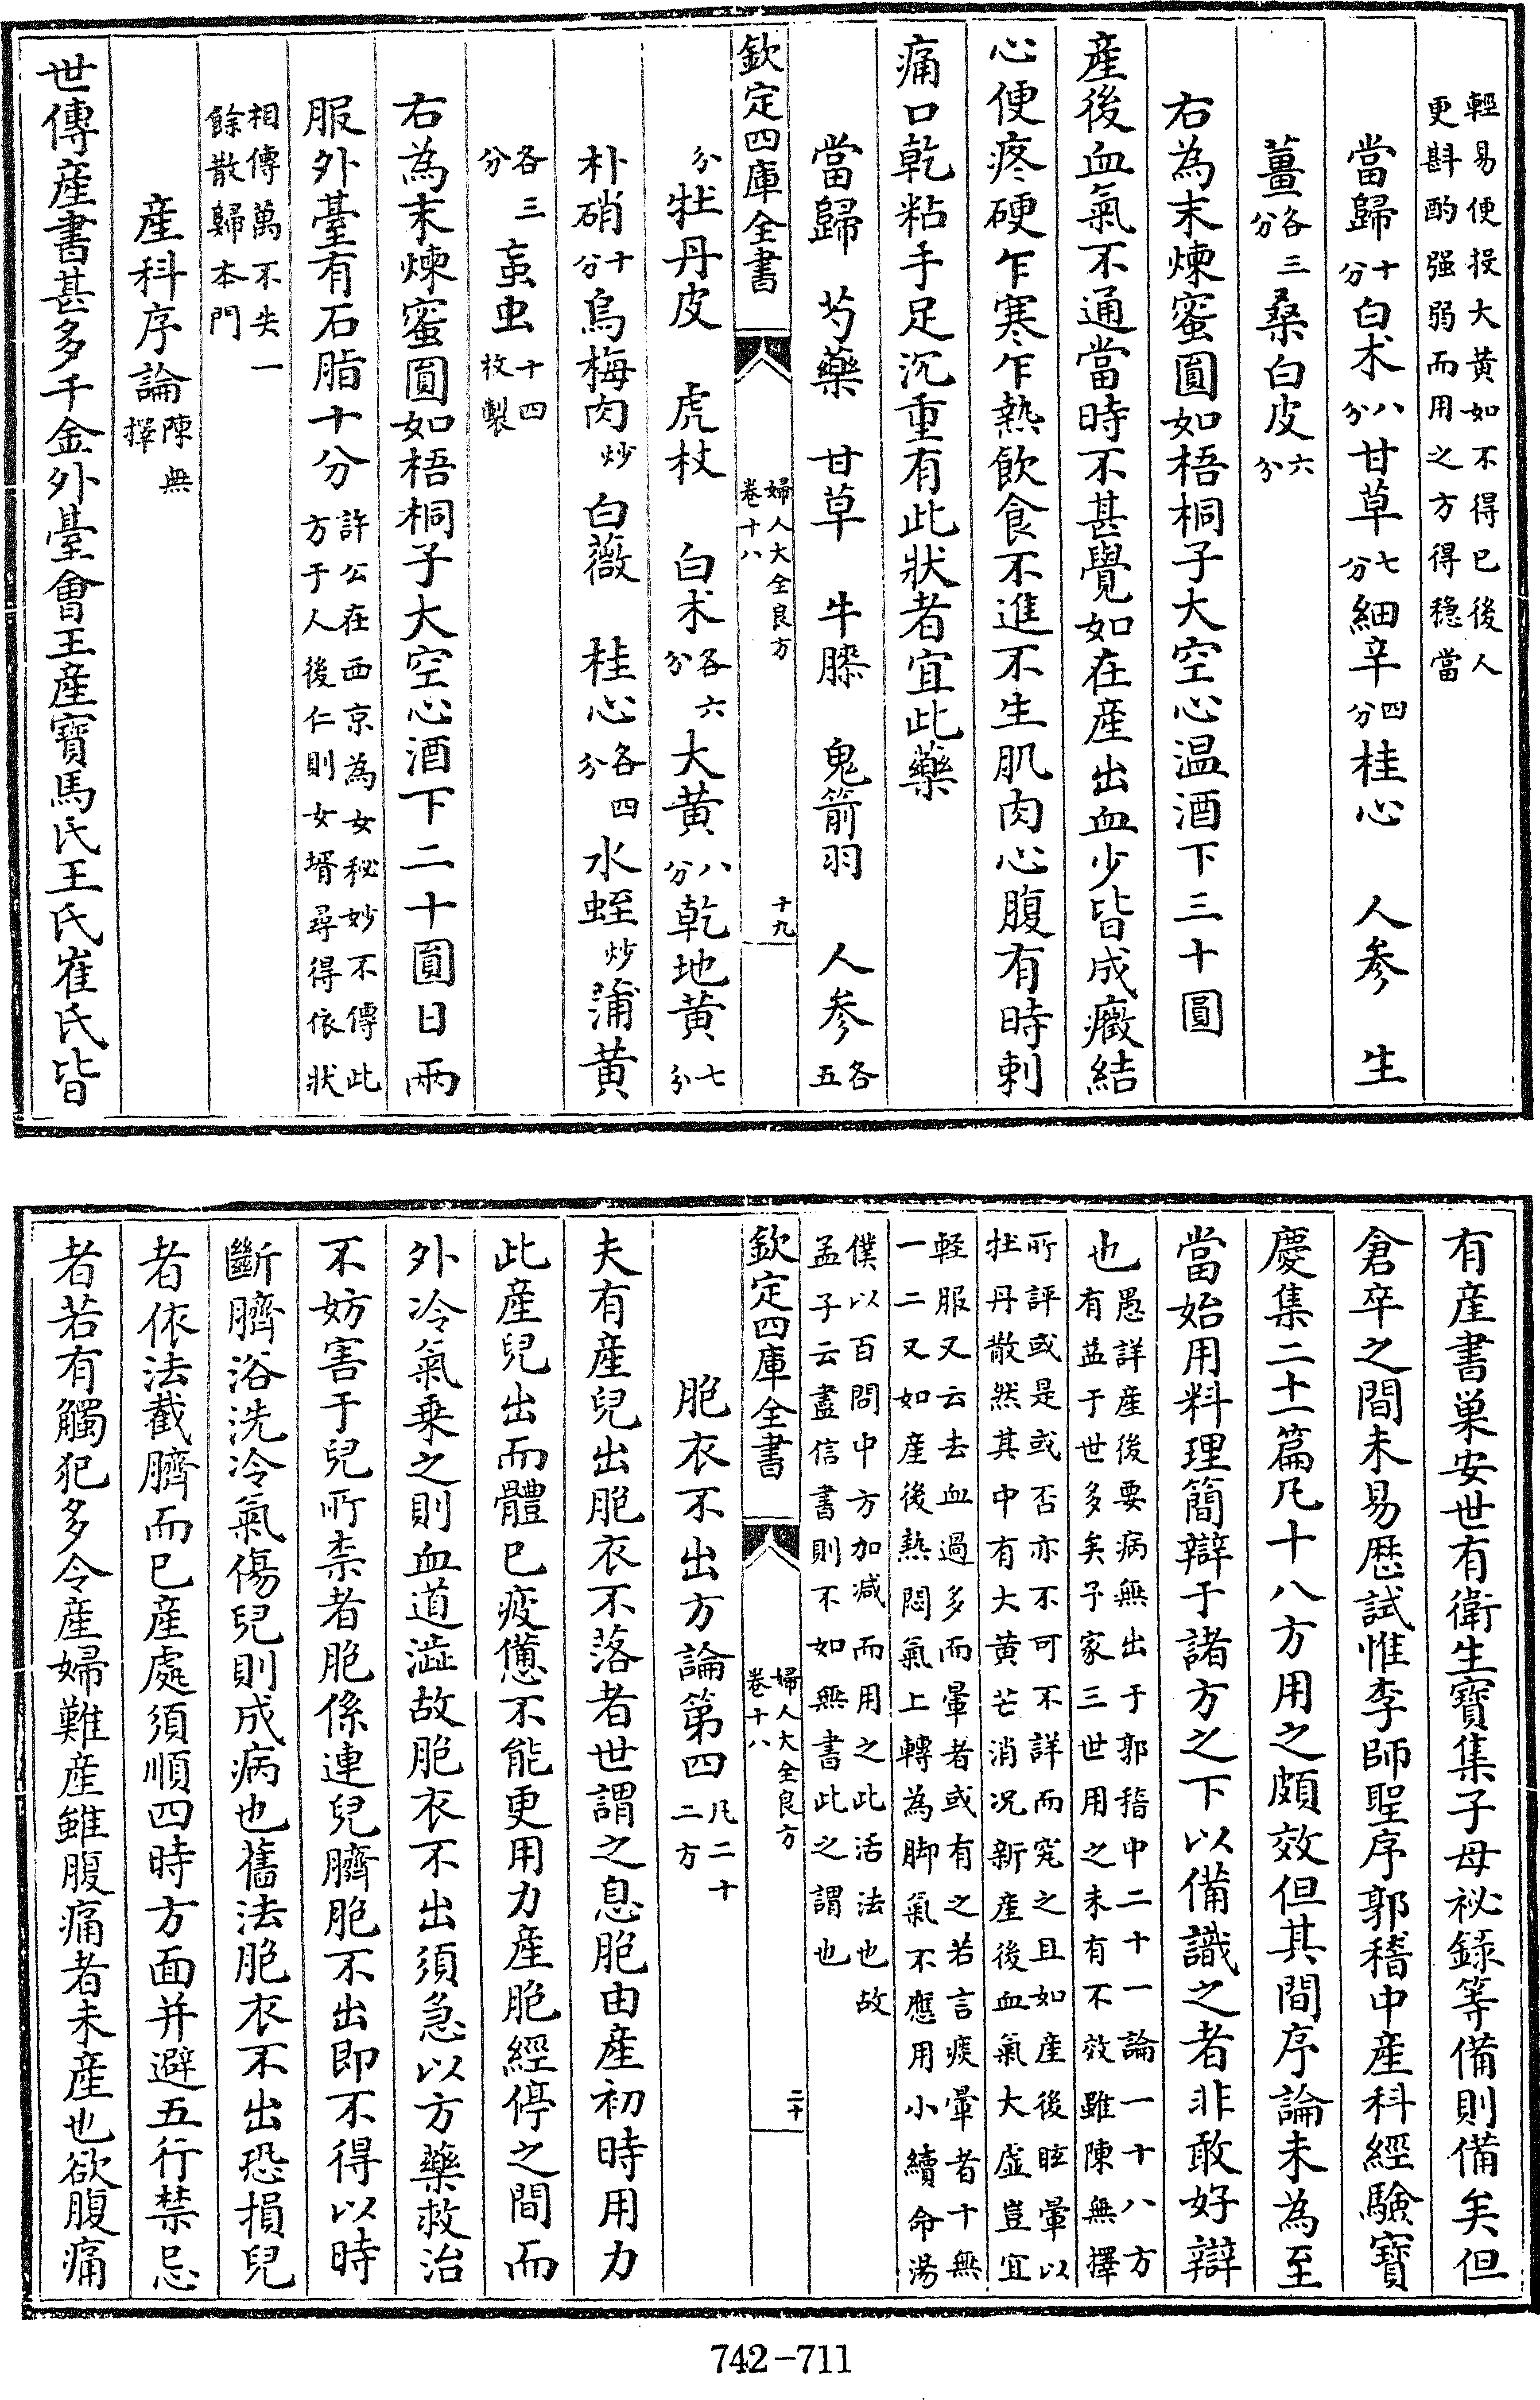 輕易便投大黄如不得已後人
更斟酌强弱而用之方得穏當
當歸十分白术八分甘草七分細辛四分桂心　人參　生
薑各三分桑白皮六分
右為末煉蜜圓如梧桐子大空心温酒下三十圓
產後血氣不通當時不甚覺如在產出血少皆成癥結
心便疼硬乍寒乍熱飲食不進不生肌肉心腹有時刺
痛口乾粘手足沉重有此狀者宜此藥
當歸　芍藥　甘草　牛膝　鬼箭羽　人參各五
欽定四庫全書　婦人大全良方卷十八　十九
分牡丹皮　虎杖　白术各六分大黄八分乾地黄七分
朴硝十分烏梅肉炒白薇　桂心各四分水蛭炒蒲黄
各三分䖟虫十四枚製
右為末煉蜜圓如梧桐子大空心酒下二十圓日兩
服外臺有石脂十分許公在西京為女秘妙不傳此方于人後仁則女壻尋得依狀
相傳萬不失一餘散歸本門
產科序論陳無擇
世傳產書甚多千金外臺會王產寳馬氏王氏崔氏皆
有產書巢安世有衛生寳集子母祕錄等備則備矣但
倉卒之間未易歴試惟李師聖序郭稽中產科經驗寳
慶集二十一篇凡十八方用之頗效但其間序論未為至
當始用料理簡辯于諸方之下以備識之者非敢好辯
也愚詳產後要病無出于郭稽中二十一論一十八方有益于世多矣予家三世用之未有不效雖陳無擇
所評或是或否亦不可不詳而究之且如產後眩暈以牡丹散然其中有大黄芒消况新產後血氣大虛豈宜
輕服又云去血過多而暈者或有之若言痰暈者十無一二又如產後熱悶氣上轉為脚氣不應用小續命湯
僕以百問中方加减而用之此活法也故孟子云盡信書則不如無書此之謂也
欽定四庫全書　婦人大全良方卷十八　二十
胞衣不出方論第四凡二十二方
夫有產兒出胞衣不落者世謂之息胞由產初時用力
此產兒出而體已疲憊不能更用力產胞經停之間而
外冷氣乗之則血道澁故胞衣不出須急以方藥救治
不妨害于兒所柰者胞係連兒臍胞不出即不得以時
斷臍浴洗冷氣傷兒則成病也舊法胞衣不出恐損兒
者依法截臍而已產處須順四時方面并避五行禁忌
者若有觸犯多令產婦難產雖腹痛者未產也欲腹痛
742-711